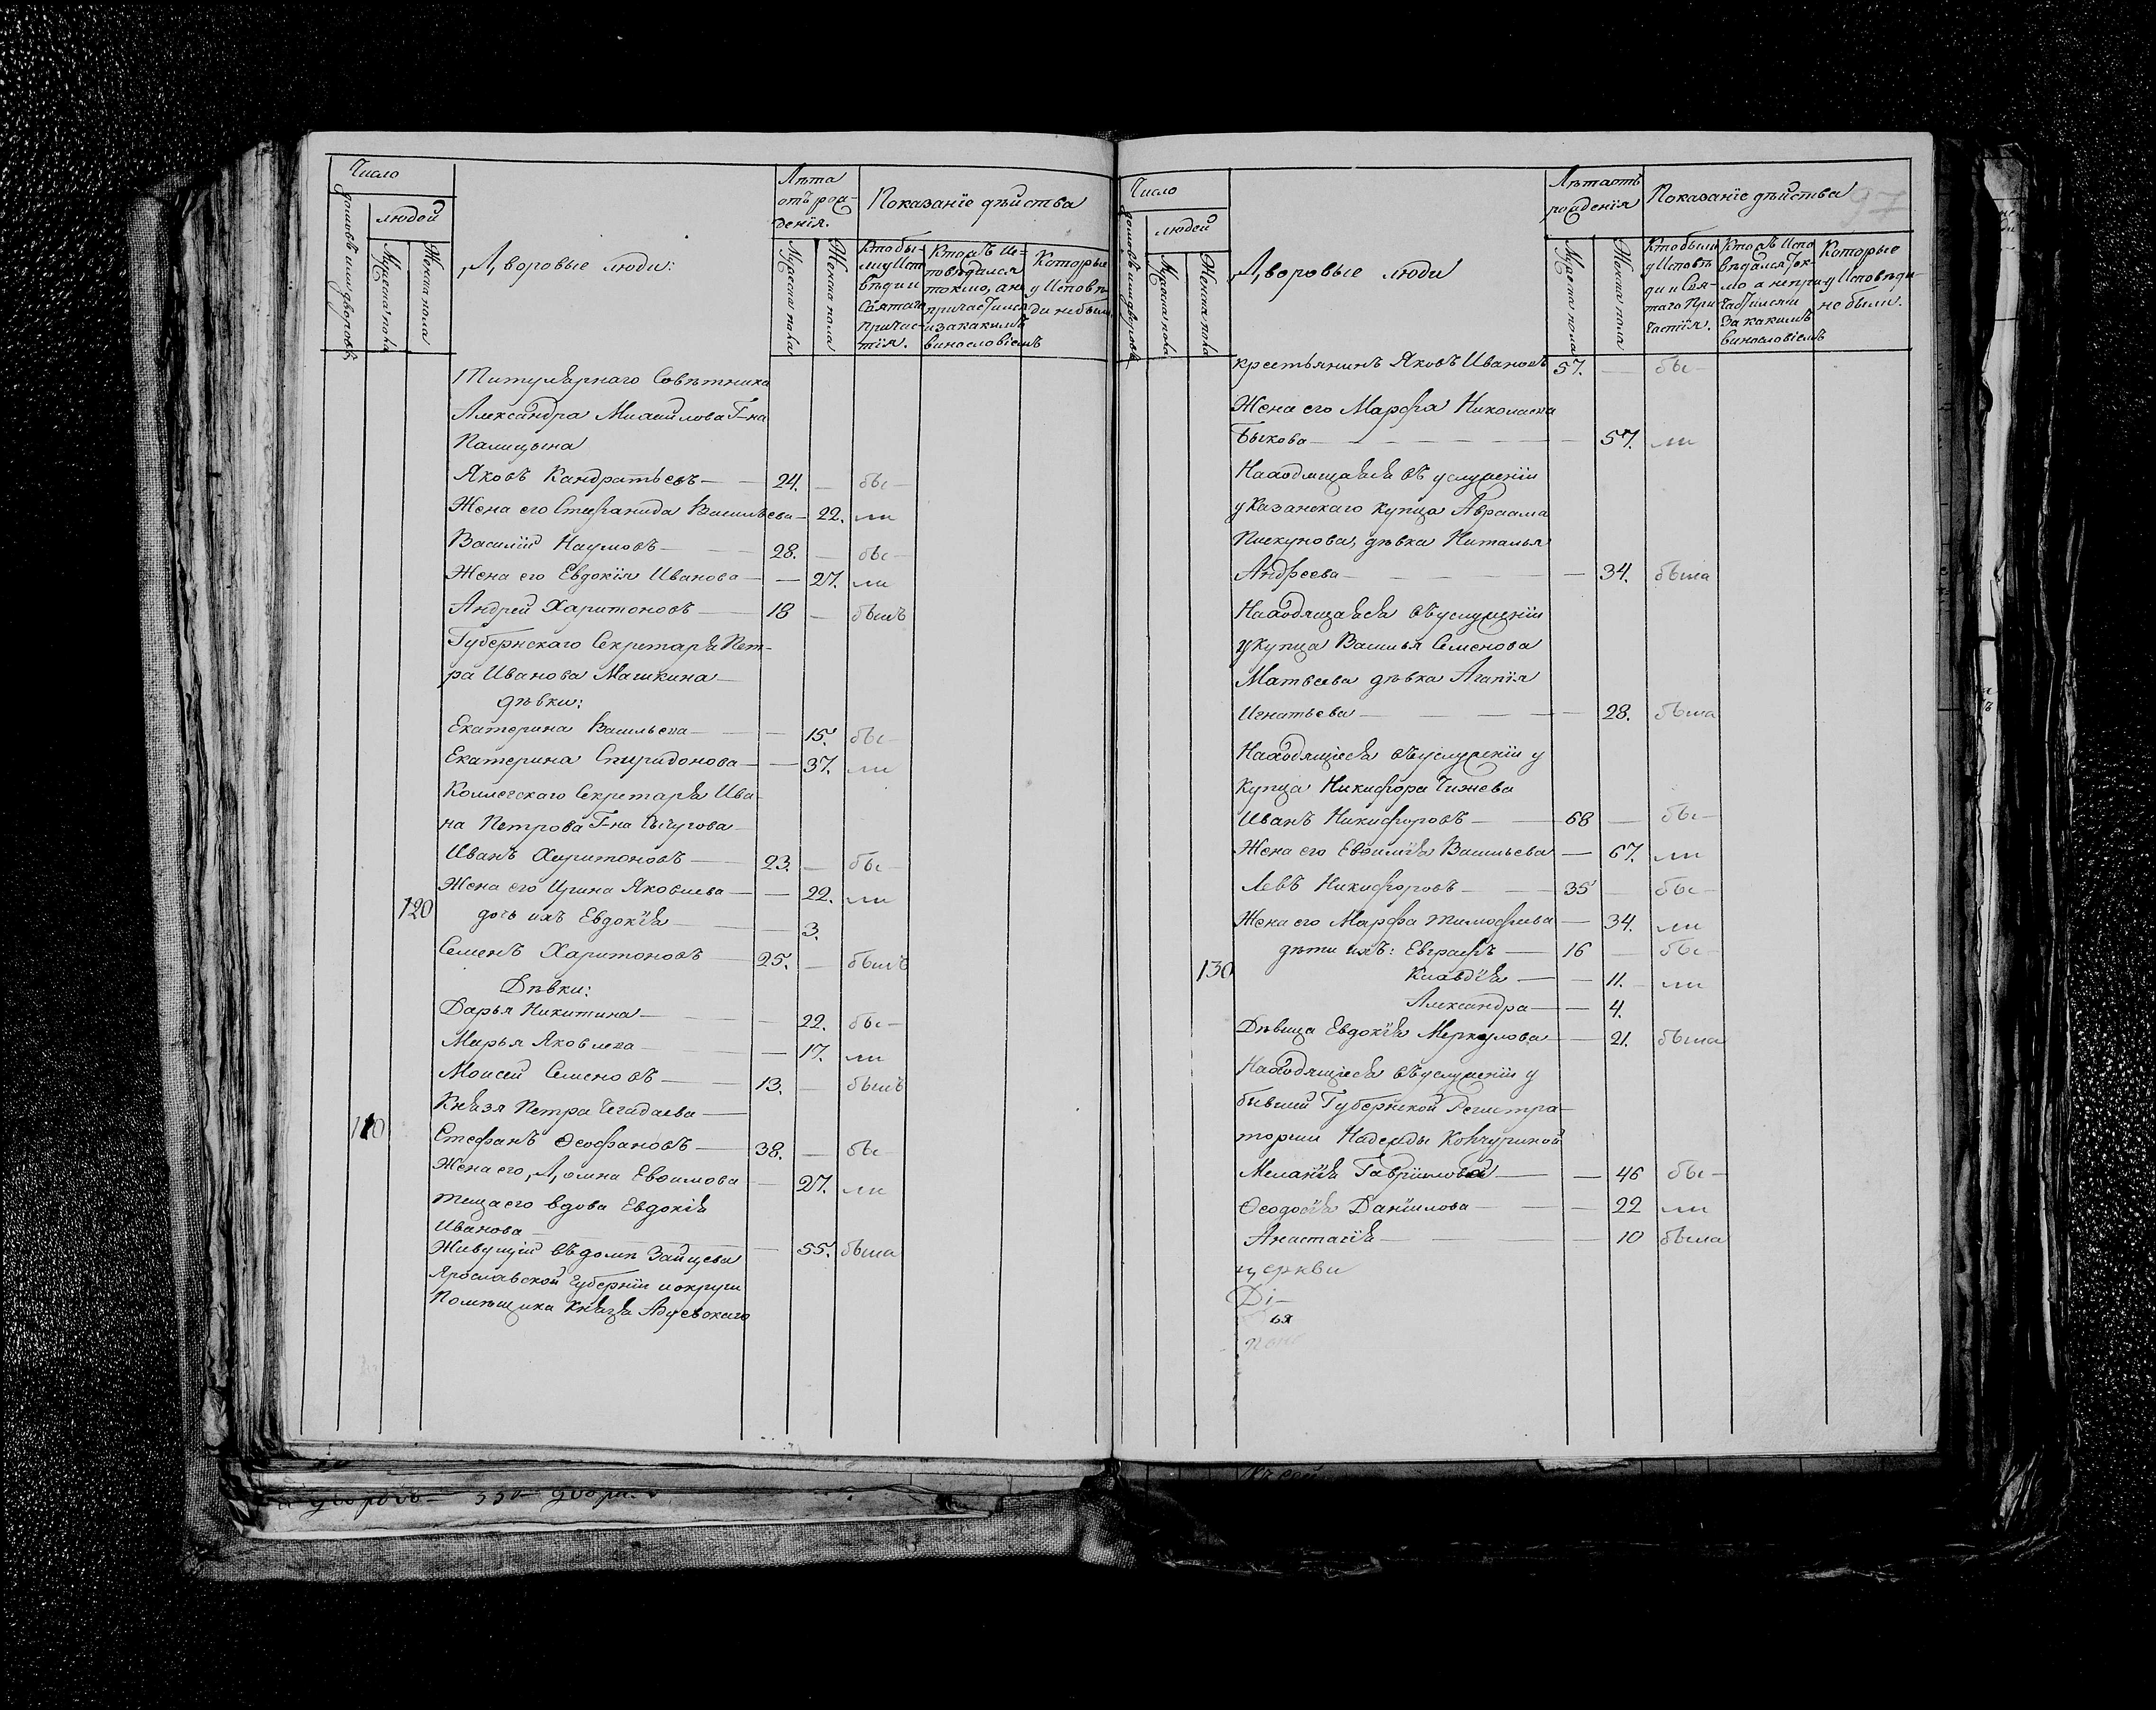 Число
людей
домовъ или дворовъ
Мужеска пола
Женска пола
Дворовые люди:
Лѣта
отъ рож-
денія.
Мужеска пола
Женска пола
Показаніе дѣйства
Кто бы-
ли у Испо
вѣди и
Святаго
Причас-
тія.
Кто жъ Ис-
повѣдался
токмо, а не
причастился
и за какимъ
винословіемъ
Которые
у Исповѣ
ди не были.
Титулярнаго Совѣтника
Александра Михайлова Г-на
Палицына
Яковъ Кандратьевъ — 24. — бы-
Жена его Стефанида Васильева — 22. ли
Василій Наумовъ — 28. — бы-
Жена его Евдокія Иванова — — 27. ли
Андрей Харитоновъ — 18 — былъ
Губернскаго Секретаря Пет-
ра Иванова Машкина
дѣвки:
Екатерина Васильева — — 15. бы-
Екатерина Спиридонова — — 37. ли
Коллегскаго Секретаря Ива-
на Петрова Г-на
Иванъ Харитоновъ — 23. — бы-
Жена его Ирина Яковлева — — 22. ли
120 дочь ихъ Евдокія — — 3.
Семенъ Харитоновъ 25. — былъ
Дѣвки:
Дарья Никитина — — 22. бы-
Марья Яковлева — — 17. ли
Моисей Семеновъ — 13. — былъ
Князя Петра Чегадаева —
110 Стефанъ Ѳеофановъ — 38. — бы-
Жена его, Домна Евѳимова — 27. ли
теща его вдова Евдокія
Иванова — — 55. была
Живущій въ домѣ Зайцева
Ярославской Губерніи и округи
Помѣщика Князя
97
Число
людей
домовъ или дворовъ
Мужеска пола
Женска пола
Дворовые люди
Лѣта отъ
рожденія
Мужеска пола
Женска пола
Показаніе дѣйства
Кто были
у Исповѣ
ди и Свя-
таго При-
частія.
Кто жъ Испо
вѣдался ток-
мо а не при-
частился и
за какимъ
винословіемъ
Которые
у Исповѣди
не были.
крестьянинъ Яковъ Ивановъ 57. — бы-
Жена его Марфа Николаева
Быкова — — 57. ли
Находящаяся въ услуженіи
у Казанскаго купца Авраама
Пискунова, дѣвка Наталья
Андреева — — 34. была
Находящаяся въ услуженіи
у купца Василья Семенова
Матвеева дѣвка Агапія
Игнатьева — — 28. была
Находящіеся въ услуженіи у
Купца Никифора Чижева
Иванъ Никифоровъ — 68 — бы-
Жена его Евѳимія Васильева — 67. ли
Левъ Никифоровъ — 35 — бы-
Жена его Марфа Тимофеева — 34. ли
дѣти ихъ: Евграфъ — 16 — бы-
130 Клавдія — — 11. — ли
Александра — — 4.
Дѣвица Евдокія Меркулова — 21. была
Находящіеся въ услуженіи у
бывшей Губернской Регистра-
торши Надежды
Меланія Гавриилова — — 46 бы-
Ѳеодосія Даніилова — — 22 ли
Анастасія — — 10 была
церкви
Ді-
ья